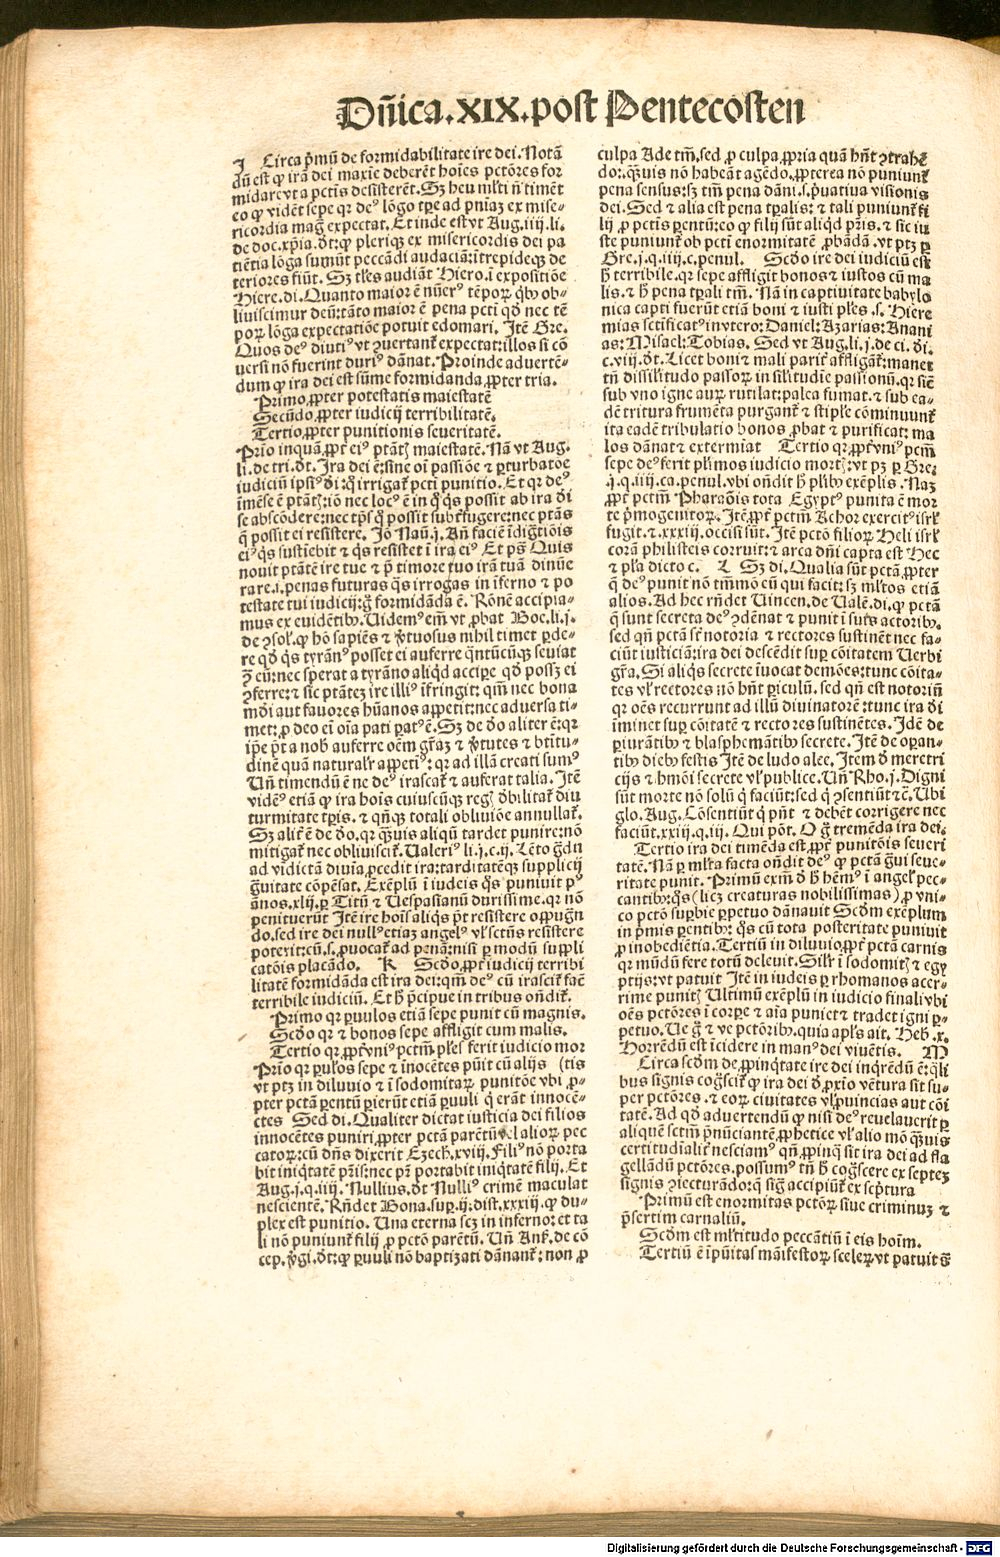 Dñica.XIX.post Pentecosten
J Circa pͥmũ de formidabilitate ire dei. Notã
dũ est ꝙ irã dei maxie deberẽt hoies pctõres for
midare vt a pctis desisterẽt. Sꝫ heu ml'ti ñ timẽt
eo ꝙ vidẽt sepe qr deꝰ lõgo tꝑe ad pniaꝫ ex mise⸗
ricordia mag̃ expectat. Et inde est vt Aug. iiij. li.
de doc. xp̃ia. dt: ꝙ pleriqꝫ ex misericordis dei pa
tiẽtia lõga sumũt peccãdi audaciã: ĩtrepideqꝫ de
teriores fiũt. Sꝫ tl'es audiãt Hiero. ĩ expositiõe
Hiere. di. Quanto maior ẽ nũerꝰ tẽpoꝝ qͥbꝰ ob⸗
liuiscimur deũ: tãto maior ẽ pena pcti qꝺ nec tẽ
poꝝ lõga expectatiõe potuit edomari. Itẽ Gre.
Quos deꝰ diutiꝰ vt ꝯuertanẽ expectat: illos si cõ
uersi nõ fuerint duriꝰ dãnat. Proinde aduertẽ⸗
dum ꝙ ira dei est sũme formidanda ꝓpter tria.
Primo ꝓpter potestatis maiestatẽ
Secũdo ꝓpter iudicij terribilitatẽ.
Tertio ꝓpter punitionis seueritatẽ.
Pri̇o inquã ꝓpt' eiꝰ ptãtꝭ maiestatẽ. Nã vt Aug.
li. de tri. dt. Ira dei ẽ: sine oi̇ passiõe ⁊ ꝑturbatõe
iudiciũ ipsiꝰ di: q̃ irrigat pcti punitio. Et qr deꝰ
imẽse ẽ ptãtꝭ: iõ nec locꝰ ẽ in q̃ qͥs possit ab ira di
se abscõdere: nec tp̃s q̃ possit subt'fugere: nec ptãs
q̃ possit ei resistere. Jõ Naũ. j. Añ faciẽ ĩdigt̃iõis
eiꝰ qͥs sustĩebit ⁊ qͥs resistet ĩ ira eiꝰ Et ps̃ Quis
nouit ptãtẽ ire tue ⁊ p̃ timore tuo irã tuã dinũe
rare. i. penas futuras qͣs irrogas in ĩferno ⁊ po
testate tui iudicij: g̃ formidãda ẽ. Rõnẽ accipia⸗
mus ex euidẽtibꝰ. Uidemꝰ em̃ vt ꝓbat Boe. li. j.
de ꝯsol. ꝙ hõ sapiẽs ⁊ ṽtuosus nihil timet ꝑde⸗
re qꝺ qͥs tyrãnꝰ posset ei auferre qñtũcũqꝫ seuiat
ꝯ̃ eũ: nec sperat a tyrãno aliqd accipe qꝺ possꝫ ei
ꝯferre: ⁊ sic ptãteꝫ ire illiꝰ ĩfringit: qm̃ nec bona
mũdi aut fauores hũanos appetit: nec aduersa ti⸗
met: ꝓ deo ei̇ oi̇a pati paratꝰ ẽ. Sꝫ de do aliter ẽ: qr
ip̃e pt̃ a nobꝭ auferre oẽm gr̃aꝫ ⁊ ṽtutes ⁊ btĩtu⸗
dinẽ quã naturalr appetiꝰ: qr ad illã creati sumꝰ
Uñ timendũ ẽ ne deꝰ irascaẽ ⁊ auferat talia. Itẽ
vidẽꝰ etiã ꝙ ira hoi̇s cuiuscũqꝫ regꝭ dbilitat diu
turmitate tꝑis. ⁊ qñqꝫ totali obliuiõe annullat.
Sꝫ alit' ẽ de do. qr qͣuis aliqũ tardet punire: nõ
mitigat nec obliuiscit. Ualeriꝰ li. j. c. ij. Lẽto gͣdu
ad vidictã diuia ꝓcedit ira: tarditatẽqꝫ supplicij
gͣuitate cõpẽsat. Exẽplũ ĩ iudeis qͦs puniuit pꝰ
ãnos. xlij. ꝑ Titũ ⁊ Uespasianũ durissime. qr nõ
penituerũt Itẽ ire hoi̇s aliqͥs pt̃ resistere oppugñ
do. sed ire dei nullꝰ etiaꝫ angelꝰ vl' sctũs resistere
poterit: cũ. s. ꝓuocaẽ ad punãꝫ: nisi ꝑ modũ suppli
catõis placãdo. K Scdo ꝓpt' iudicij terribi
litatẽ formidãda est ira dei: qm̃ deꝰ cũ irasciẽ faẽ
terribile iudiciũ. Et h̃ p̃cipue in tribus oñdit.
Primo qr ꝑuulos etiã sepe punit cũ magnis.
Scdo qr ⁊ bonos sepe affligit cum malis.
Tertio qr ꝓpt' vniꝰ pctm̃. pl'es ferit iudicio mor
Pri̇o qr ꝑul'os sepe ⁊ ĩnocẽtes pũit cũ alijs (tis
vt ptꝫ in diluuio ⁊ ĩ sodomitaꝝ punitõe vbi ꝓ⸗
pter pctã ꝑentũ ꝑierũt etiã ꝑuuli q̃ erãt innocẽ⸗
ctes Sed di. Qualiter dictat iusticia dei filios
innocẽtes puniri ꝓpter pctã parẽtũ vel alioꝝ pec
catoꝝ: cũ dñs dixerit Ezech. xviij. Filiꝰ nõ porta
bit iniqtatẽ pr̃is: nec pr̃ portabit iniqtatẽ filij. Et
Aug. j. q. iiij. Nullius. dt Nulliꝰ crimẽ maculat
nescientẽ. Rñdet Bona. suꝑ. ij. dist. xxxiij. ꝙ du⸗
plex est punitio. Una eterna scꝫ in inferno: et ta
li nõ puniunẽ filij ꝓ pctõ parẽtũ. Uñ Anẽ. de cõ
cep. ṽgi. dt: ꝙ ꝑuuli nõ baptizati dãnanẽ: non ꝓ
culpa Ade tm̃. sed ꝓ culpa ꝓpria quã hñt ꝯtrahẽ
do: qͣuis nõ habeãt agẽdo. ꝓpterea nõ puniunẽ
pena sensus: sꝫ tm̃ pena dãni. s. p̃uatiua visionis
dei. Sed ⁊ alia est pena tꝑalis: ⁊ tali puniunẽ fi
lij ꝓ pctis ꝑentũ: eo ꝙ filij sũt aliqd pr̃is. ⁊ sic iu
ste puniunẽ ob pcti enormitatẽ ꝓbãdã. vt ptꝫ ꝑ
Gre. j. q. iiij. c. penul. Scdo ire dei iudiciũ est
h̃ terribile. qr sepe affligit bonos ⁊ iustos cũ ma
lis. ⁊ h̃ pena tꝑali tm̃. Nã in captiuitate babylo
nica capti fuerũt etiã boni ⁊ iusti pl'es. s. Hiere
mias sctificatꝰ in vtero: Daniel: Azarias: Anani
as: Misael: Tobias. Sed vt Aug. li. j. de ci. di.
c. viij. dt. Licet boni ⁊ mali parit' affligãẽ: manet
tñ dissilitudo passoꝝ in silitudie passionũ. qr siẽ
sub vno igne auꝝ rutilat: palea fumat. ⁊ sub ea⸗
dẽ tritura frumẽta purganẽ ⁊ stiple cõminuunẽ
ita eadẽ tribulatio bonos ꝓbat ⁊ purificat: ma
los dãnat ⁊ extermiat Tertio qr ꝓpt' vniꝰ pctm̃
sepe deꝰ ferit pl'imos iudicio mortꝭ: vt pꝫ ꝑ Gre.
j. q. iiij. ca. penul. vbi oñdit h̃ pl'ibꝰ exẽplis. Naꝫ
ꝓpt' pctm̃ Pharaõis tota Egyptꝰ punita ẽ mor
te p̃mogenitoꝝ. Itẽ ꝓpt' pctm̃ Achor exercitꝰ isrl'
fugit. ⁊. xxxiij. occisi sũt. Itẽ pctõ filioꝝ Heli isrl'
corã philisteis corruit: ⁊ arca dñi capta est Hec
⁊ pl'a dicto c. L Sꝫ di. Qualia sũt pctã ꝓpter
q̃ deꝰ punit nõ tm̃mõ eũ qui facit: sꝫ ml'tos etiã
alios. Ad hec rñdet Uincen. de Ualẽ. di. ꝙ pctã
q̃ sunt secreta deꝰ ꝯdẽnat ⁊ punit ĩ suis actoribꝰ.
sed qñ pctã s̃t notoria ⁊ rectores sustinẽt nec fa⸗
ciũt iusticiã: ira dei descẽdit suꝑ cõitatem Uerbi
gr̃a. Si aliqͥs secrete ĩuocat demões: tunc cõita⸗
tes vl' rectores nõ hñt ꝑiculũ. sed qñ est notoriũ
qr oẽs recurrunt ad illũ diuinatorẽ: tunc ira di
ĩminet suꝑ cõitatẽ ⁊ rectores sustinẽtes. Idẽ de
ꝑiurãtibꝰ ⁊ blasphemãtibꝰ secrete. Itẽ de oꝑan⸗
tibꝰ diebꝰ festis Itẽ de ludo alee. Item d̃ meretri
cijs ⁊ hmõi secrete vl' publice. Uñ Rho. j. Digni
sũt morte nõ solũ q̃ faciũt: sed q̃ ꝯsentiũt ⁊c̃. Ubi
glo. Aug. Cõsentiũt q̃ pñt ⁊ debẽt corrigere nec
faciũt. xxij. q. iij. Qui põt. O g̃ tremẽda ira dei.
Tertio ira dei timẽda est ꝓpt' punitõis seueri
tatẽ. Nã ꝑ ml'ta facta oñdit deꝰ ꝙ pctã gͣui seue⸗
ritate punit. Primũ exm̃ d̃ h̃ hẽmꝰ ĩ angel' pec⸗
cantibꝰ: qͦs (licꝫ creaturas nobilissimas) ꝓ vni⸗
co pctõ suꝑbie ꝑpetuo dãnauit Scdm̃ exẽplum
in p̃mis ꝑentibꝰ: qͦs cũ tota posteritate puniuit
ꝓ inobediẽtia. Tertiũ in diluuio ꝓpt' pctã carnis
qr mũdũ fere totũ deleuit. Sil'r ĩ sodomitꝭ ⁊ egy
ptijs: vt patuit Itẽ in iudeis ꝑ rhomanos acer⸗
rime punitꝭ Ultimũ exẽplũ in iudicio finali vbi
oẽs pctõres ĩ corꝑe ⁊ aĩa puniet ⁊ tradet igni ꝑ⸗
petuo. Ue g̃ ⁊ ve pctõribꝰ. quia apl's ait. Heb. x.
Horrẽdũ est ĩcidere in manꝰ dei viuẽtis. M
Circa scdm̃ de ꝓpinqͣtate ire dei inqrẽdũ ẽ: q̃li
bus signis cog̃scit' ꝙ ira dei d̃ ꝓxi̇o vẽtura sit su⸗
per pctõres. ⁊ eoꝝ ciuitates vl' ꝓuincias aut cõi
tatẽ. Ad qꝺ aduertendũ ꝙ nisi deꝰ reuelauerit ꝑ
aliquẽ sctm̃ p̃nũciantẽ ꝓphetice vl' alio mõ qͣuis
certitudi̇alit' nesciamꝰ qñ ꝓpinqͣ sit ira dei ad fla
gellãdũ pctõres. possumꝰ tñ h̃ cog̃scere ex septeꝫ
signis ꝯiecturãdo: q̃ sig̃ accipiũẽ ex scp̃tura
Primũ est enormitas pctõꝝ siue criminuꝫ ⁊
p̃sertim carnaliũ.
Scdm̃ est ml'titudo peccãtiũ ĩ eis hoim̃.
Tertiũ ẽ ĩpũitas mãifestoꝝ sceleꝝ vt patuit s̃
Digitalisierung gefördert durch die Deutsche Forschungsgemeinschaft - DFG